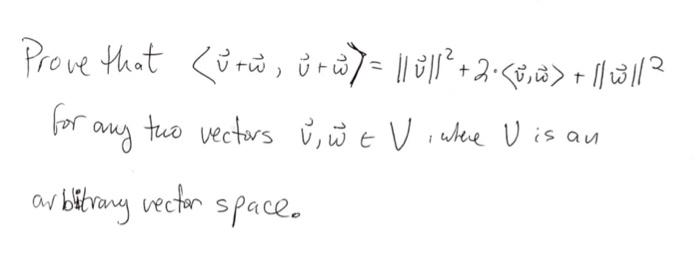 Prove that ⟨v⃗+w⃗, v⃗+w⃗⟩ = ||v⃗||² + 2·⟨v⃗,w⃗⟩ + ||w⃗||²
for any two vectors v⃗, w⃗ ∈ V, where V is an
arbitrary vector space.